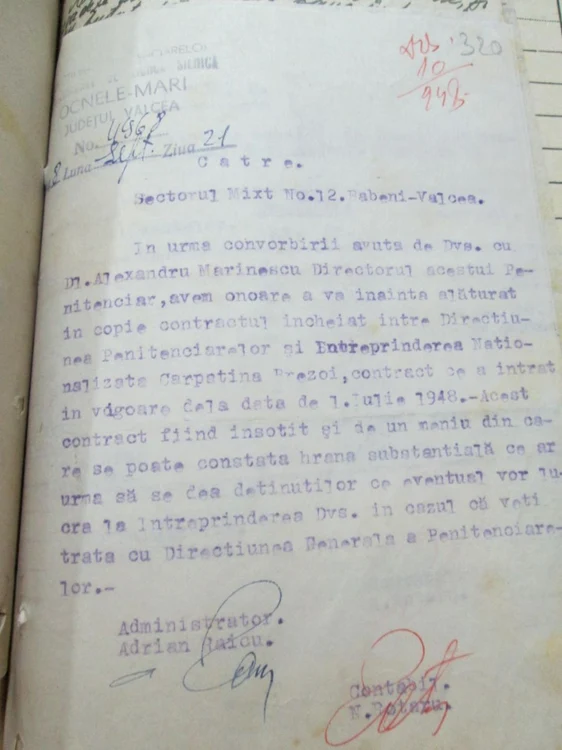 SILNICA
OCNELE-MARI
JUDEȚUL VALCEA
No. 4968
Luna Sept. Ziua 21
320
10
948
Catre.
Sectorul Mixt No.12.Babeni-Valcea.
In urma convorbirii avuta de Dvs. cu
Dl.Alexandru Marinescu Directorul acestui Pe-
nitenciar,avem onoare a va inainta alăturat
in copie contractul incheiat intre Directiu-
nea Penitenciarelor și Entreprinderea Natio-
nalizata Carpatina Brezoi,contract ce a intrat
in vigoare dela data de 1.Iulie 1948.-Acest
contract fiind insotit și de un meniu din ca-
re se poate constata hrana substantială ce ar
urma să se dea detinutilor ce eventual vor lu-
cra la Intreprinderea Dvs. in cazul că veti
trata cu Directiunea Generala a Penitenciare-
lor.-
Administrator.
Adrian Raicu.
Contabil.
N.